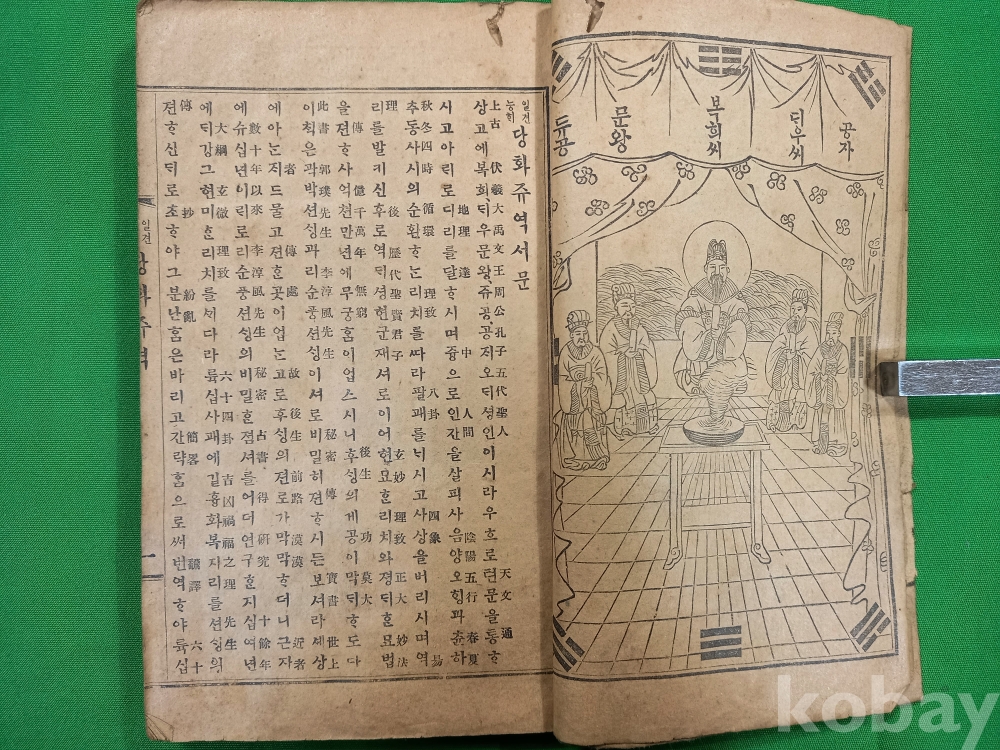 공자
뎌우씨
복희씨
문왕
듀공
일견능히 당화쥬역서문
上古 伏羲大禹文王周公孔子五代聖人 天文 通
상고에복희뎌우문왕쥬공공자오뎌셩인이시라우흐로텬문을통ᄒᆞ
地理 達 中 人間 陰陽五行 春夏
사고아ᄅᆡ로디리를달ᄒᆞ시며즁으로인간을살피사음양오ᄒᆡᆼ과츈하
秋冬四時 循環 理致 八卦 四象 易
추동사시의순환ᄒᆞᄂᆞᆫ리치를ᄯᅡ라팔괘를ᄂᆡ시고사상을버리시며역
理 後 歷代聖賢君子 玄妙 理致 正大 妙法
리를발키신후로역ᄃᆡ셩현군재셔로이어현묘ᄒᆞᆫ리치와졍ᄃᆡᄒᆞᆫ묘법
傳 億千萬年 無窮 後生 功 莫大
을젼ᄒᆞ사억쳔만년에무궁홈이업스시니후ᄉᆡᆼ의게공이막ᄃᆡᄒᆞ도다
此書 郭璞先生 李淳風先生 秘密 傳 寶書 世上
이ᄎᆡᆨ은곽박션ᄉᆡᆼ과리순풍션ᄉᆡᆼ이셔로비밀히젼ᄒᆞ시든보셔라셰상
者 傳處 故 後生 前路 漠漠 近者
에아ᄂᆞᆫ지드물고젼ᄒᆞᆫ곳이업ᄂᆞᆫ고로후ᄉᆡᆼ의젼로가막막ᄒᆞ더니근자
數十年以來 李淳風先生 秘密 占書 得 硏究 十餘年
에슈십년이ᄅᆡ로리순풍션ᄉᆡᆼ의비밀ᄒᆞᆫ졈셔를어더연구ᄒᆞᆫ지십여년
大綱 玄微 理致 六十四卦 吉凶禍福之理 先生
에ᄃᆡ강그현미ᄒᆞᆫ리치를ᄭᆡ다라륙십사괘에길흉화복지리를션ᄉᆡᆼ의
傳 抄 紛亂 簡畧 飜譯 六十
젼ᄒᆞ신ᄃᆡ로초ᄒᆞ야그분난홈은바리고간략홈으로써번역ᄒᆞ야륙십
일견 당화주역
一
kobay